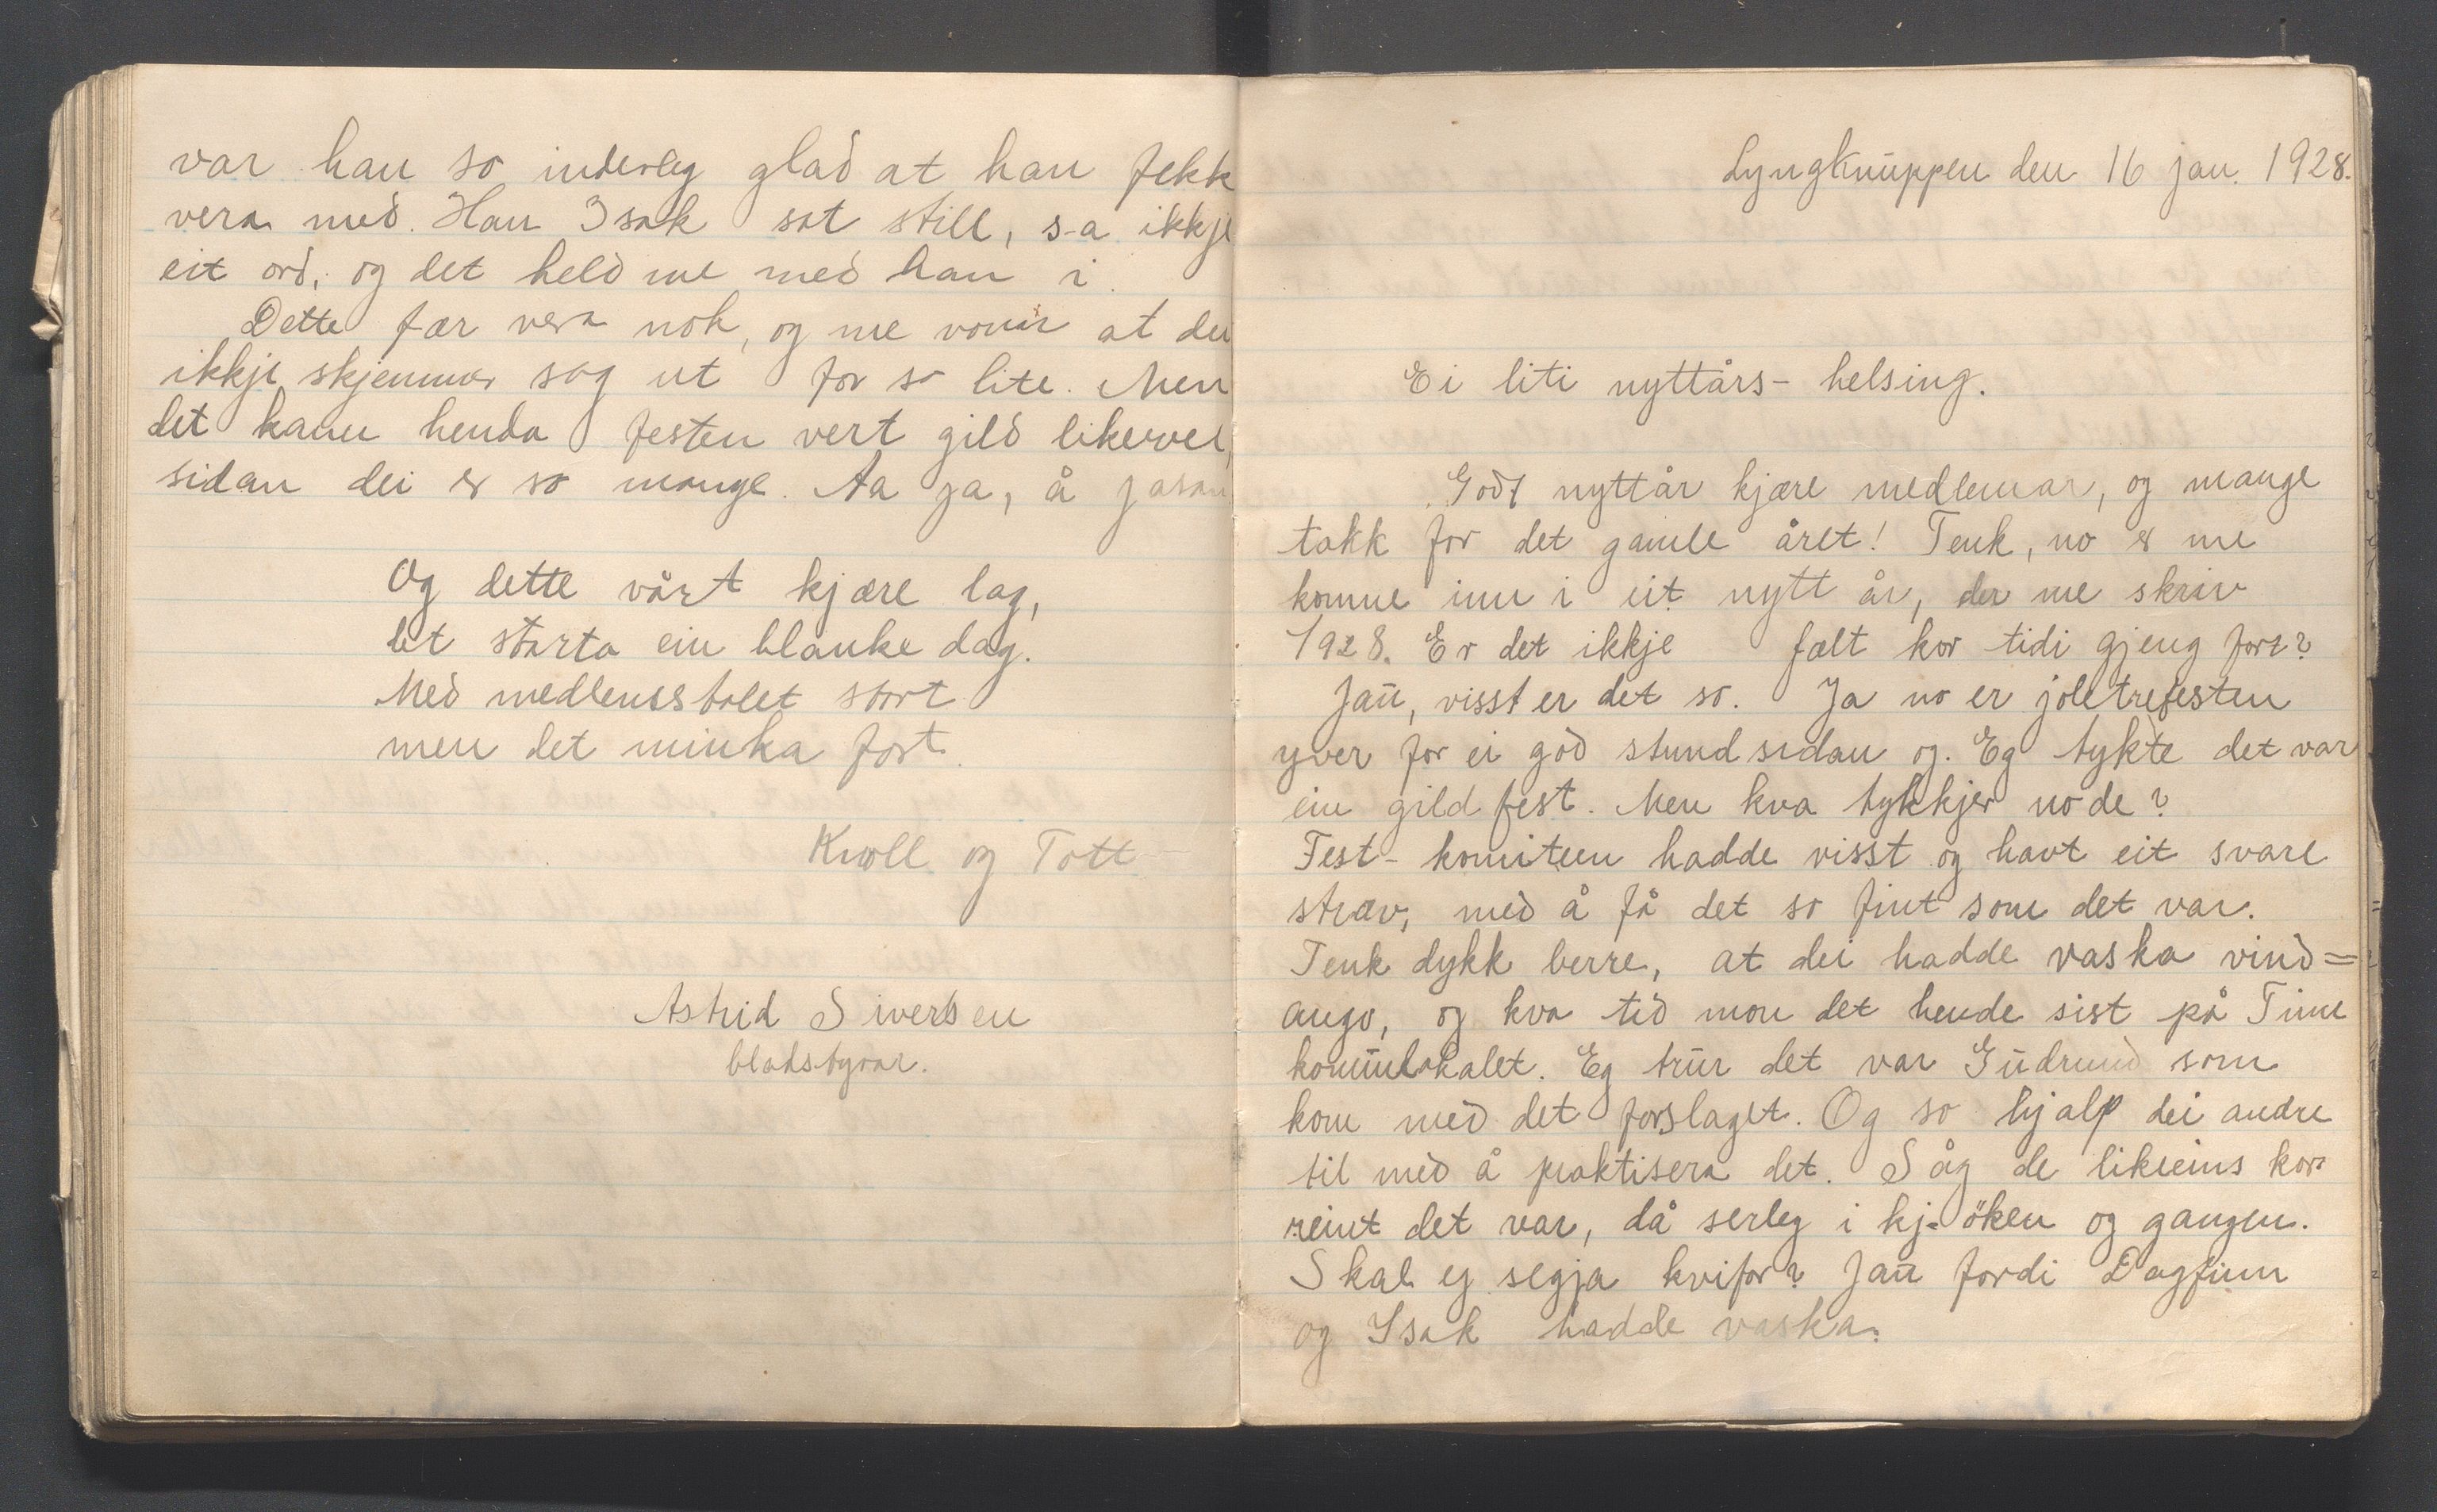 var han so inderleg glad at han fekk
vera med. Han Isak sat still, s-a ikkje
eit ord, og det held me med han i.
Dette fær vera nok, og me vonar at dei
ikkje skjemmer seg ut for so lite. Men
det kann henda festen vert gild likevel,
sidan dei er so mange. Aa ja, å jasan
Og dette vårt kjære lag,
det starta ein blanke dag.
Med medlemsstalet stort
men det minka fort.
Knoll og Tott
Astrid Sivertsen
bladstyrar.
Lyngknuppen den 16 jan. 1928.
Ei liti nyttårs- helsing.
Godt nyttår kjære medlemar, og mange
takk for det gamle året! Tenk, no er me
komne inn i eit nytt år, der me skriv
1928. Er det ikkje fælt kor tidi gjeng fort?
Jau, visst er det so. Ja no er joletrefesten
yver for ei god stund sidan og. Eg tykte det var
ein gild fest. Men kva tykkjer no de?
Fest- komiteen hadde visst og havt eit svare
stræv, med å få det so fint som det var.
Tenk dykk berre, at dei hadde vaska vind=
augo, og kva tid mon det hende sist på Time
komunlokalet. Eg trur det var Gudrund som
kom med det forslaget. Og so hjalp dei andre
til med å praktisera det. Såg de likeeins kor
reint det var, då serleg i kj-öken og gangen.
Skal eg segja kvifor? Jau fordi Dagfinn
og Isak hadde vaska.